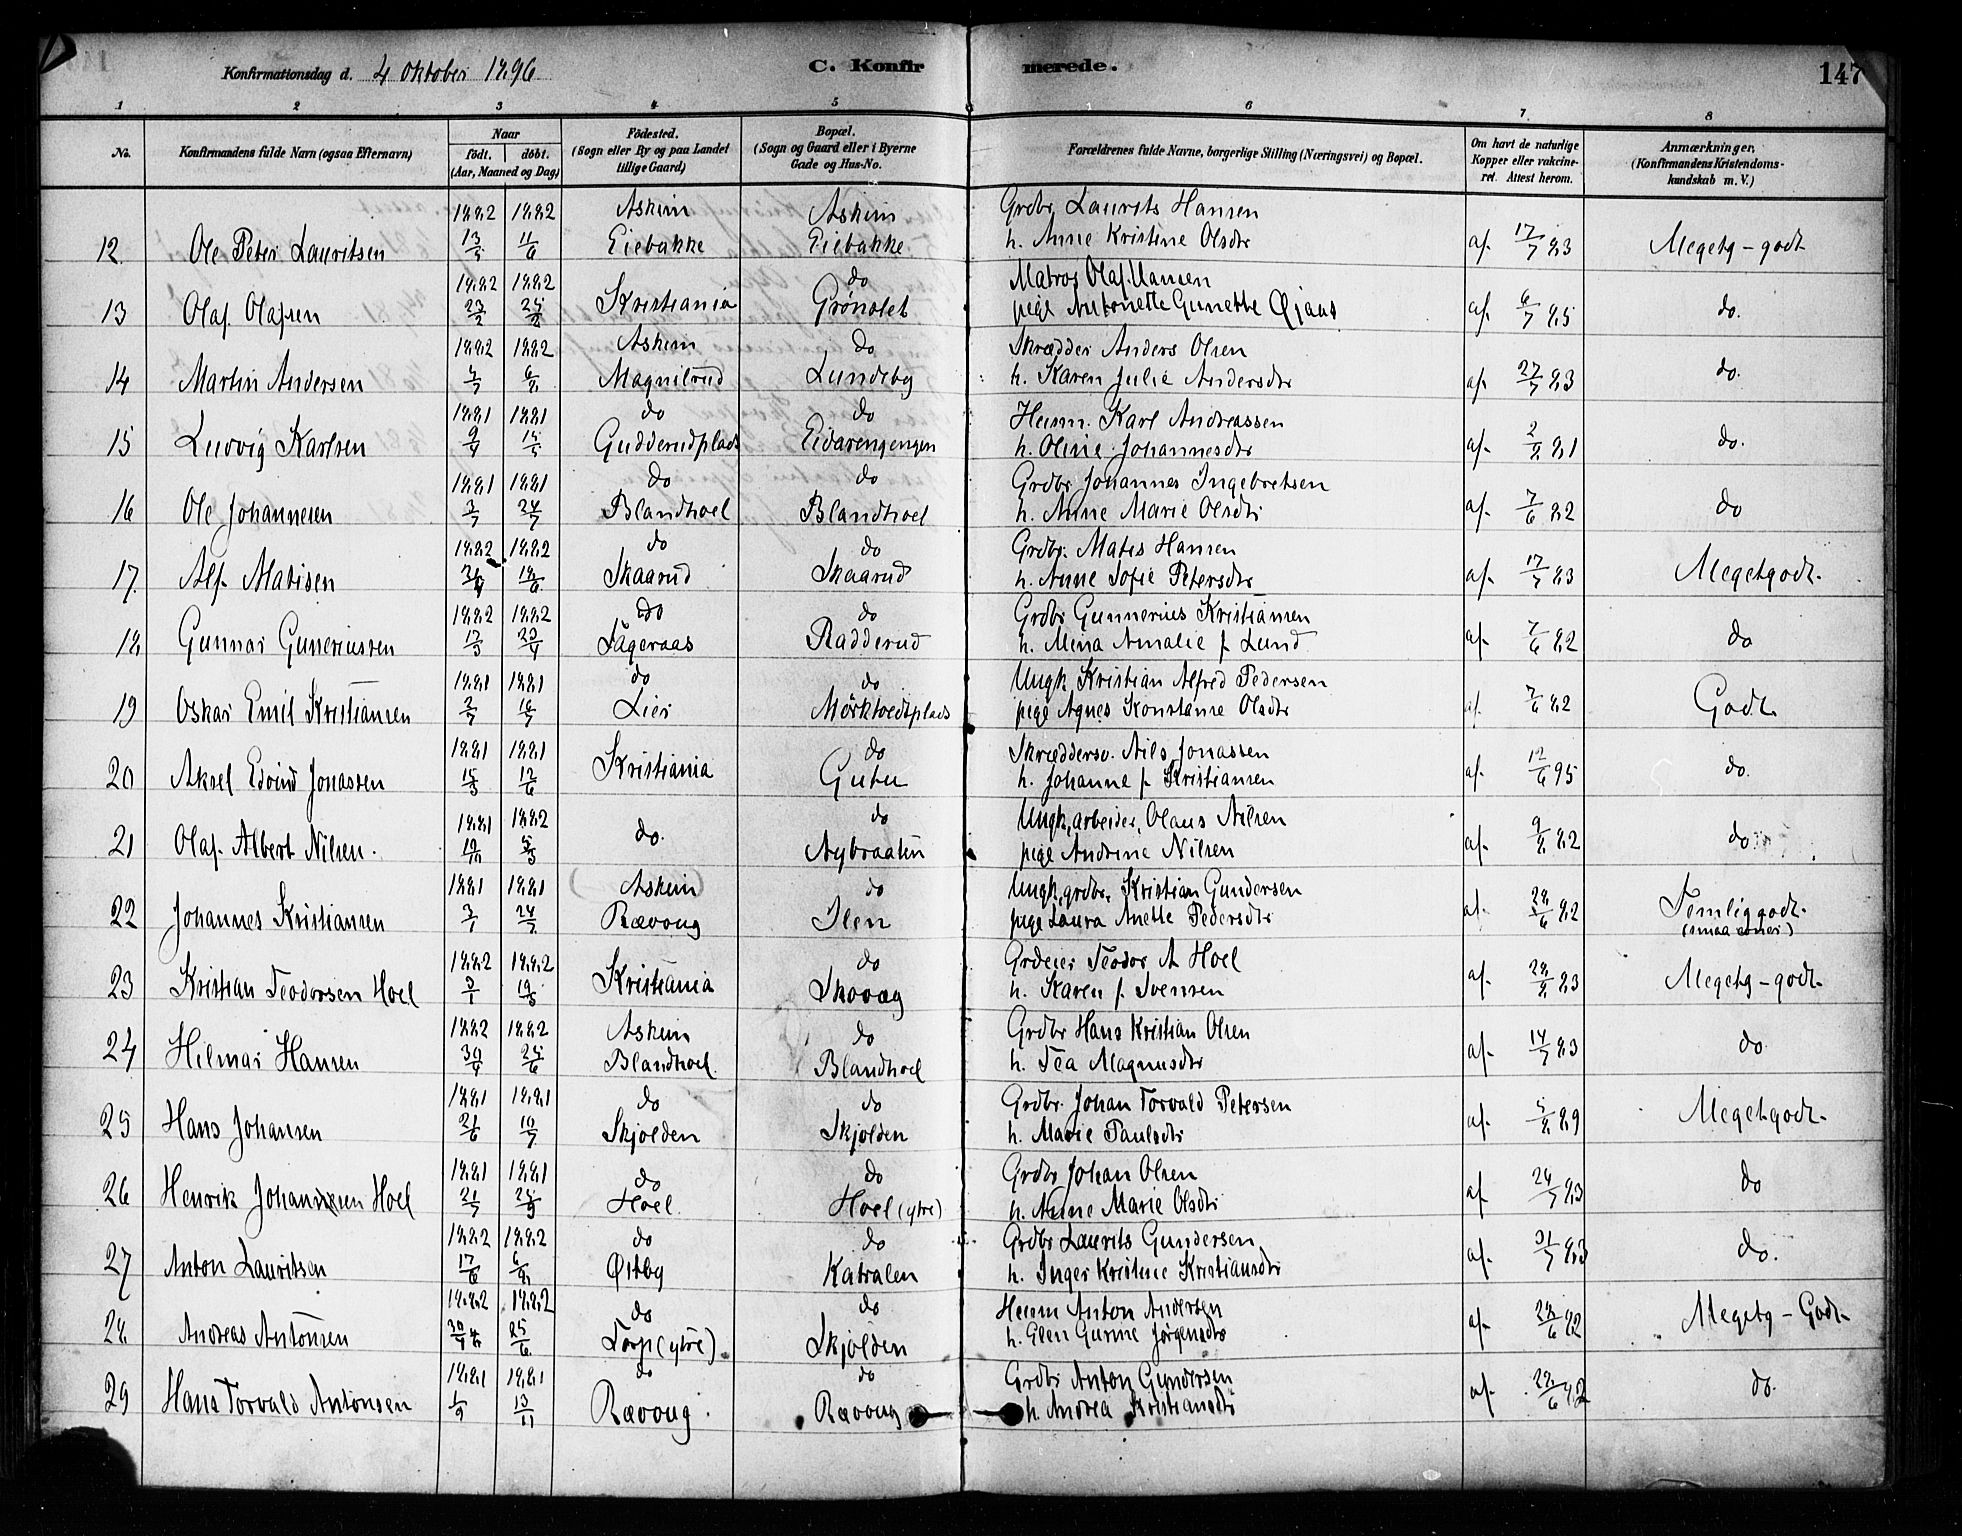 Konfirmationsdag d. 4 Oktober 1896
C. Konfirmerede.
147
1 2 3 4 5 6 7. 8
No.
Konfirmandens fulde Navn (ogsaa Efternavn)
Naar
født. døbt.
(Aar, Maaned og Dag)
Fødested.
(Sogn eller By og paa Landet
tillige Gaard)
Bopæl.
(Sogn og Gaard eller i Byerne
Gade og Hus-No.
Forældrenes fulde Navne, borgerlige Stilling (Næringsvei) og Bopæl.
Om havt de naturlige
Kopper eller vakcine-
ret. Attest herom.
Anmærkninger,
(Konfirmandens Kristendoms-
kundskab m. V.)
1882 1882 Askim Askim Grdbr Laurits Hansen
12. Ole Peter Lauritsen 11/6 Eiebakke Eiebakke h. Anne Kristine Olsdtr af. 17/7 83 Megetg - godt
1882 1882 do Matros Olaf Hansen
13 Olaf Olafsen Kristiania Grønslet pige Antonette Gunette af. 6/7 85 do.
1882 1882 Askim do Skrædder Anders Olsen
14 Martin Andersen Magnilrud Lundeby h. Karen Julie Andersdtr af. 27/7 83 do.
1881 1881 do do Husm. Karl Andreassen
15 Ludvig Karlsen Gudderudplads Eidarengengen h. Oline Johannesdtr af. 2/8 81 do.
1881 1881 do do Grdbr Johannes Ingebretsen
16 Ole Johannesen 24/7 Blandhoel Blandhoel h. Anne Marie Olsdtr af. 7/6 82 do
1882 1882 do do Grdbr. Matis Hansen
17. Alf Matisen Skaarud Skaarud h. Anne Sofie Petersdtr af. 17/7 83 Megetgodt.
1882 1882 do do Grdbr Gunnerius Kristiansen
18. Gunnar Guneriussen 23/4 Lageraas Radderud h. Mina Amalie f. Lund af. 7/6 82 do
1881 1881 do do Ungk Kristian Alfred Pedersen
19 Oskar Emil Kristiansen Lier Mørktvedtplads pige Agnes Konstanse Olsdtr af. 7/6 82 Godt
1881 1881 do Skræddersv. Nils Jonassen
20 Aksel Edvind Jonassen 12/6 Kristiania Gutu h. Johanne f. Kristiansen af. 12/6 95 do.
1881 1882 do Ungk, arbeider, Olaus Nilsen
21 Olaf Albert Nilsen. do. Nybraaten pige Andrine Nilsen af. 9/8 82 do
1881 1881 Askim do Ungk, grdbr, Kristian Gundersen
22 Johannes Kristiansen Rævoug Ilen pige Laura Anette Pedersdtr af. 28/6 82 Temliggodt.
(smaa evner)
1882 1882 do Grdeier Teodor A Hoel
23 Kristian Teodorsen Hoel Kristiania Skovag h. Karen f. Svensen af. 28/8 83 Megetg - godt
1882 1882 Askim do Grdbr Hans Kristian Olsen
24 Hilmar Hansen 30/4 25/6 Blandhoel. Blandhoel h. Tea Magnusdtr af. 14/7 83 do
1881 1881 do do Grdbr. Johan Torvald Petersen
25 Hans Johansen 21/6 Skjolden Skjolden h. Marie Paulsdtr af. 5/8 89 Megetgodt.
1881 1881 do do Grdbr Johan Olsen
26 Henrik Johansen Hoel Hoel. Hoel (ytre) h. Anne Marie Olsdtr af 24/7 83 do
1882 1882 do do Grdbr Laurits Gundersen
27 Anton Lauritsen 17/6 6/8 Østby Katralen h. Inger Kristine Kristiansdtr af. 31/7 83 do.
1882 1882 do do Husm Anton Andersen
28. Andreas Antonsen 30/4 25/6 Torp (ytre) Skjolden h. Elen Gurine Jørgensdtr af. 28/6 82 Megetg - Godt
1881 1881 do do Grdbr Anton Gundersen
29 Hans Torvald Antonsen 1/9 13/11 Rævoug. Rævoug h. Andrea Kristiansdtr af. 28/6 82 do.